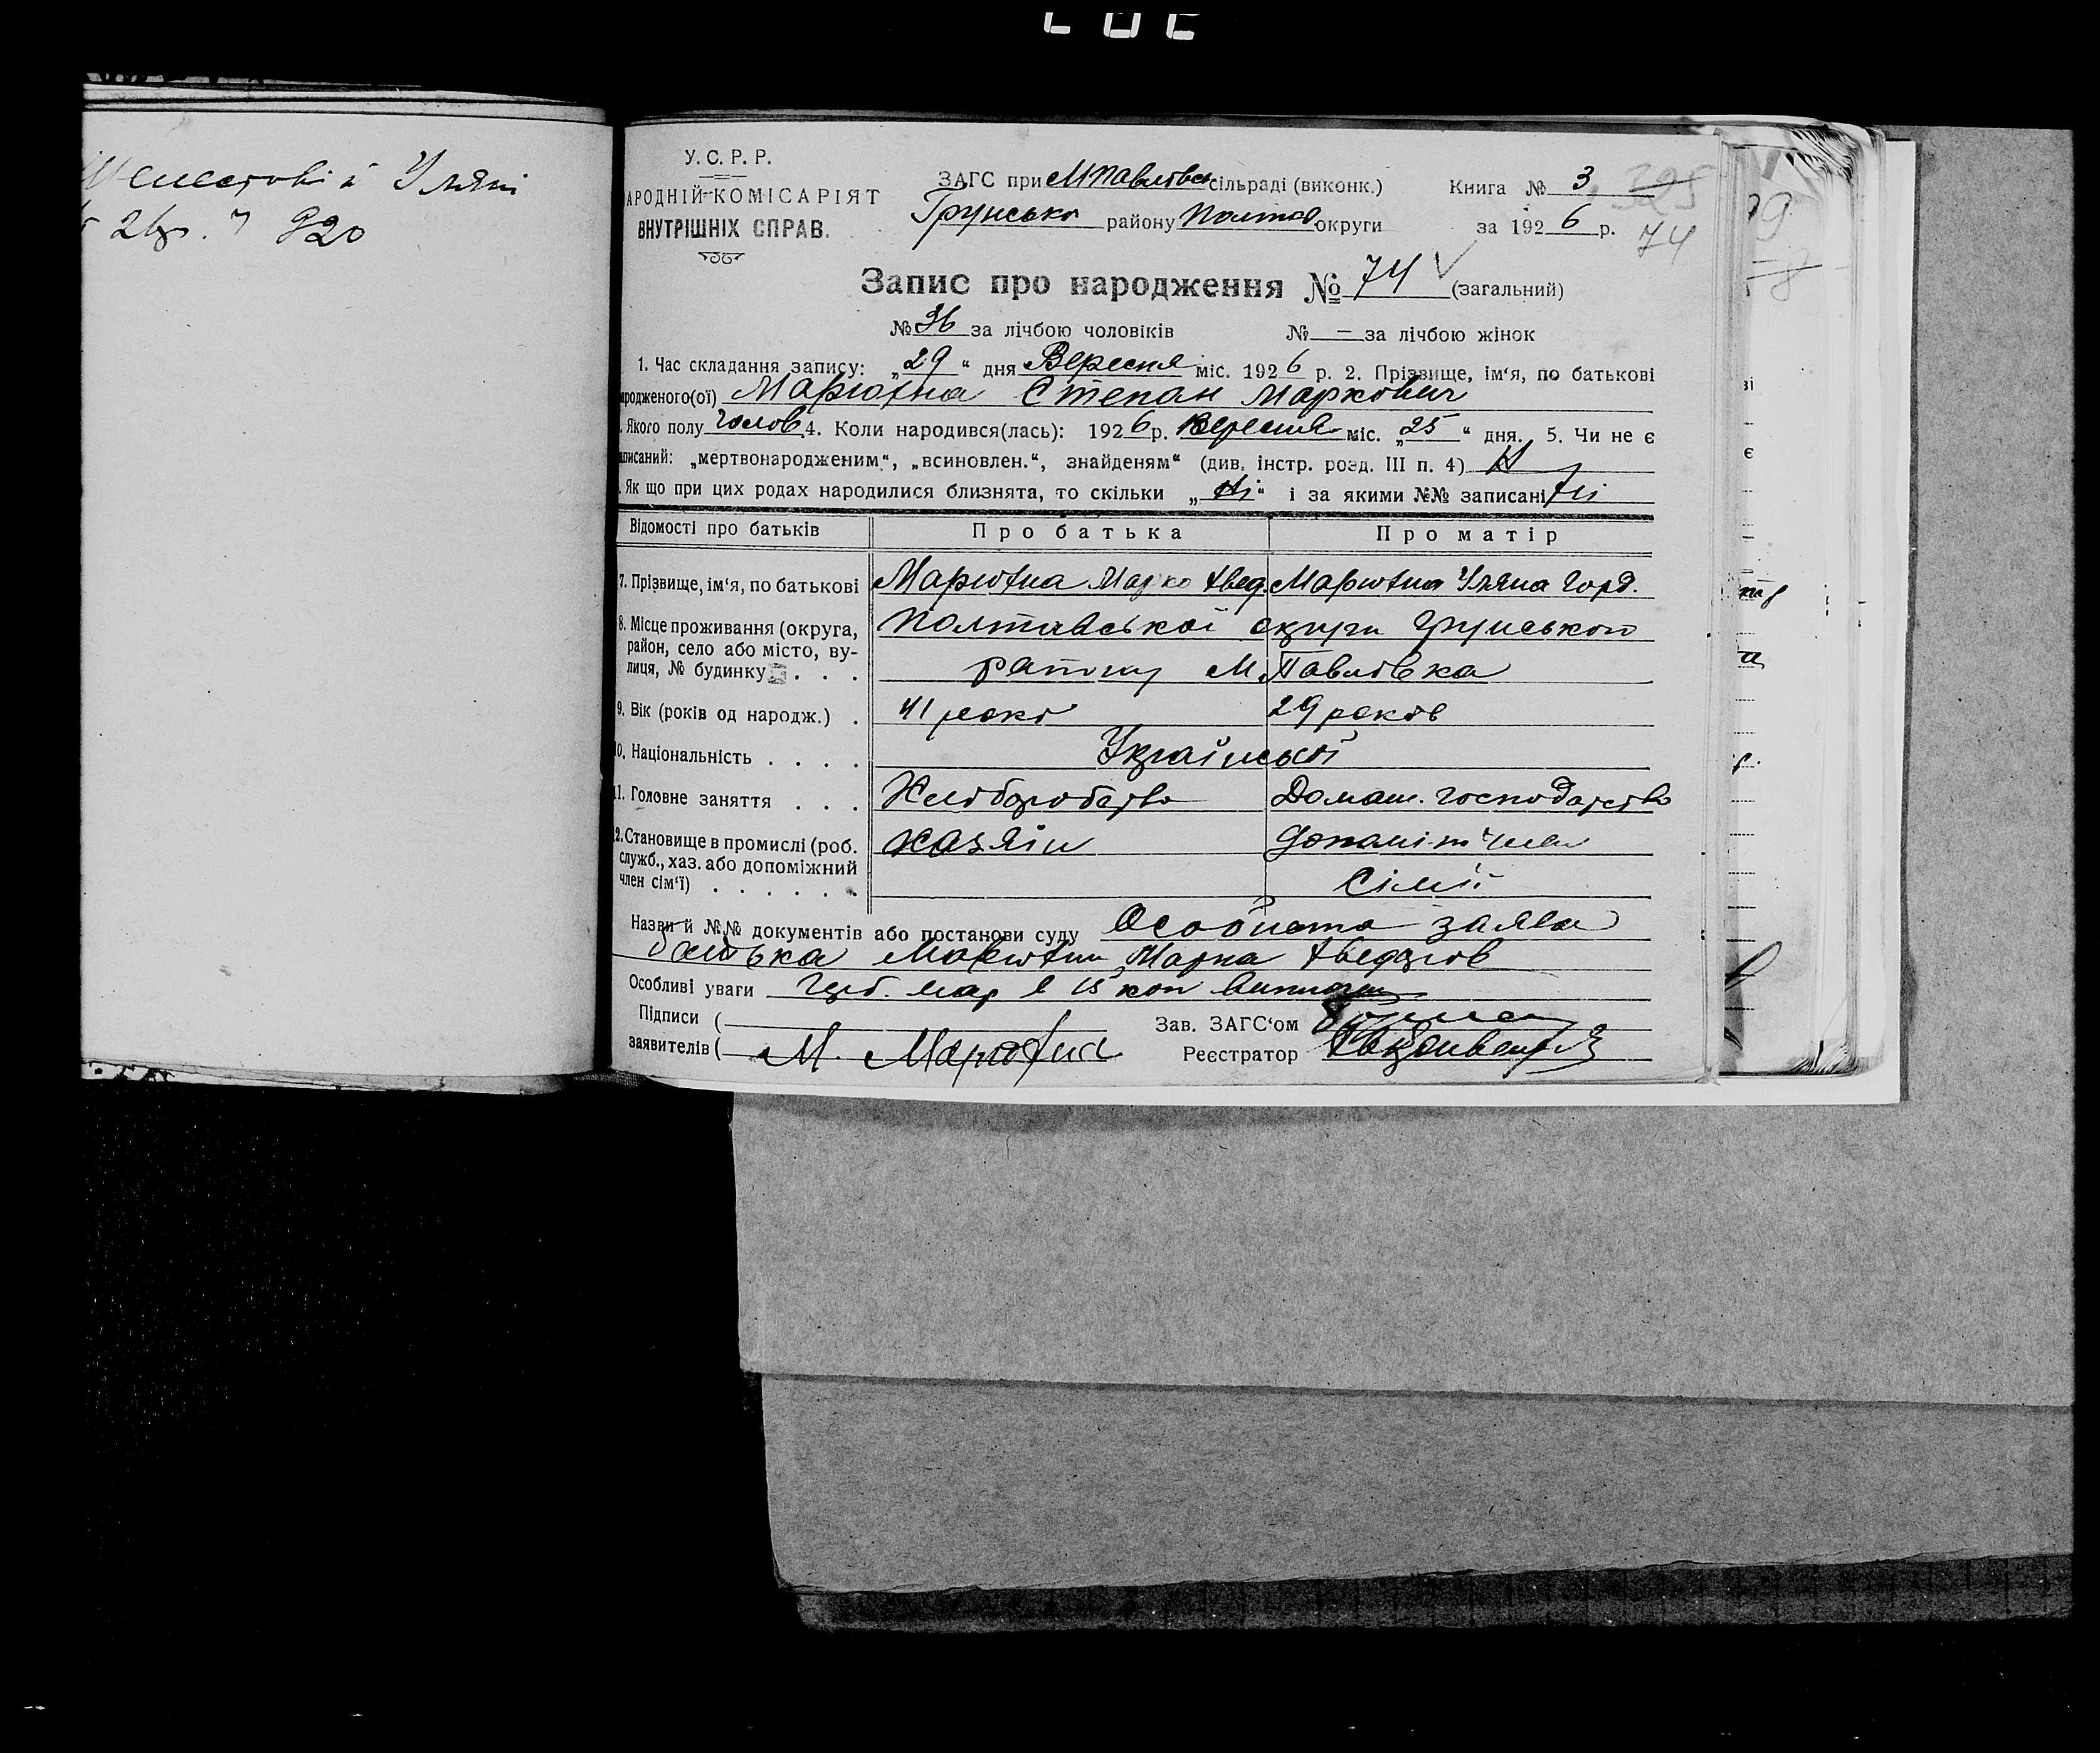 Уляні
820
У. С. Р. Р.
АРОДНІЙ КОМІСАРІЯТ
ВНУТРІШНІХ СПРАВ.
ЗАГС при МПавлівсь сільраді (виконк.)
Грунсько району Полтав округи
Книга № 3
325
за 1926 р.
74
Запис про народження № 74 (загальний)
№ 36 за лічбою чоловіків № — за лічбою жінок
1. Час складання запису: „29“ дня Вересня міс. 1926 р. 2. Прізвище, ім‘я, по батькові
родженого(ої) Марютна Степан Маркович
. Якого полу чолов 4. Коли народився(лась): 1926 р. Вересня міс. „25“ дня. 5. Чи не є
аписаний: „мертвонародженим“, „всиновлен.“, знайденям“ (див. інстр. розд. III п. 4)
. Як що при цих родах народилися близнята, то скільки „Ні“ і за якими №№ записані Ні
Відомості про батьків Про батька Про матір
7. Прізвище, ім‘я, по батькові Марютна Марко Авед. Марютна Уляна Горд.
8. Місце проживання (округа,
район, село або місто, ву-
лиця, № будинку . . .
Полтавської округи Грунського
району М.Павлівка
9. Вік (років од народж.) . 41 рокі 29 років
0. Національність . . . . Українські
11. Головне заняття . . . Хліборобство Домаш. господарство
2. Становище в промислі (роб.
служб., хаз. або допоміжний
член сім‘ї) . . . . . .
хазяїн
сімії
Назви й №№ документів або постанови суду Особиста заява
батька Марютни Марка
Особливі уваги Герб. мар в 15 коп
Підписи (
заявителів ( М. Марютна
Зав. ЗАГС‘ом
Реєстратор